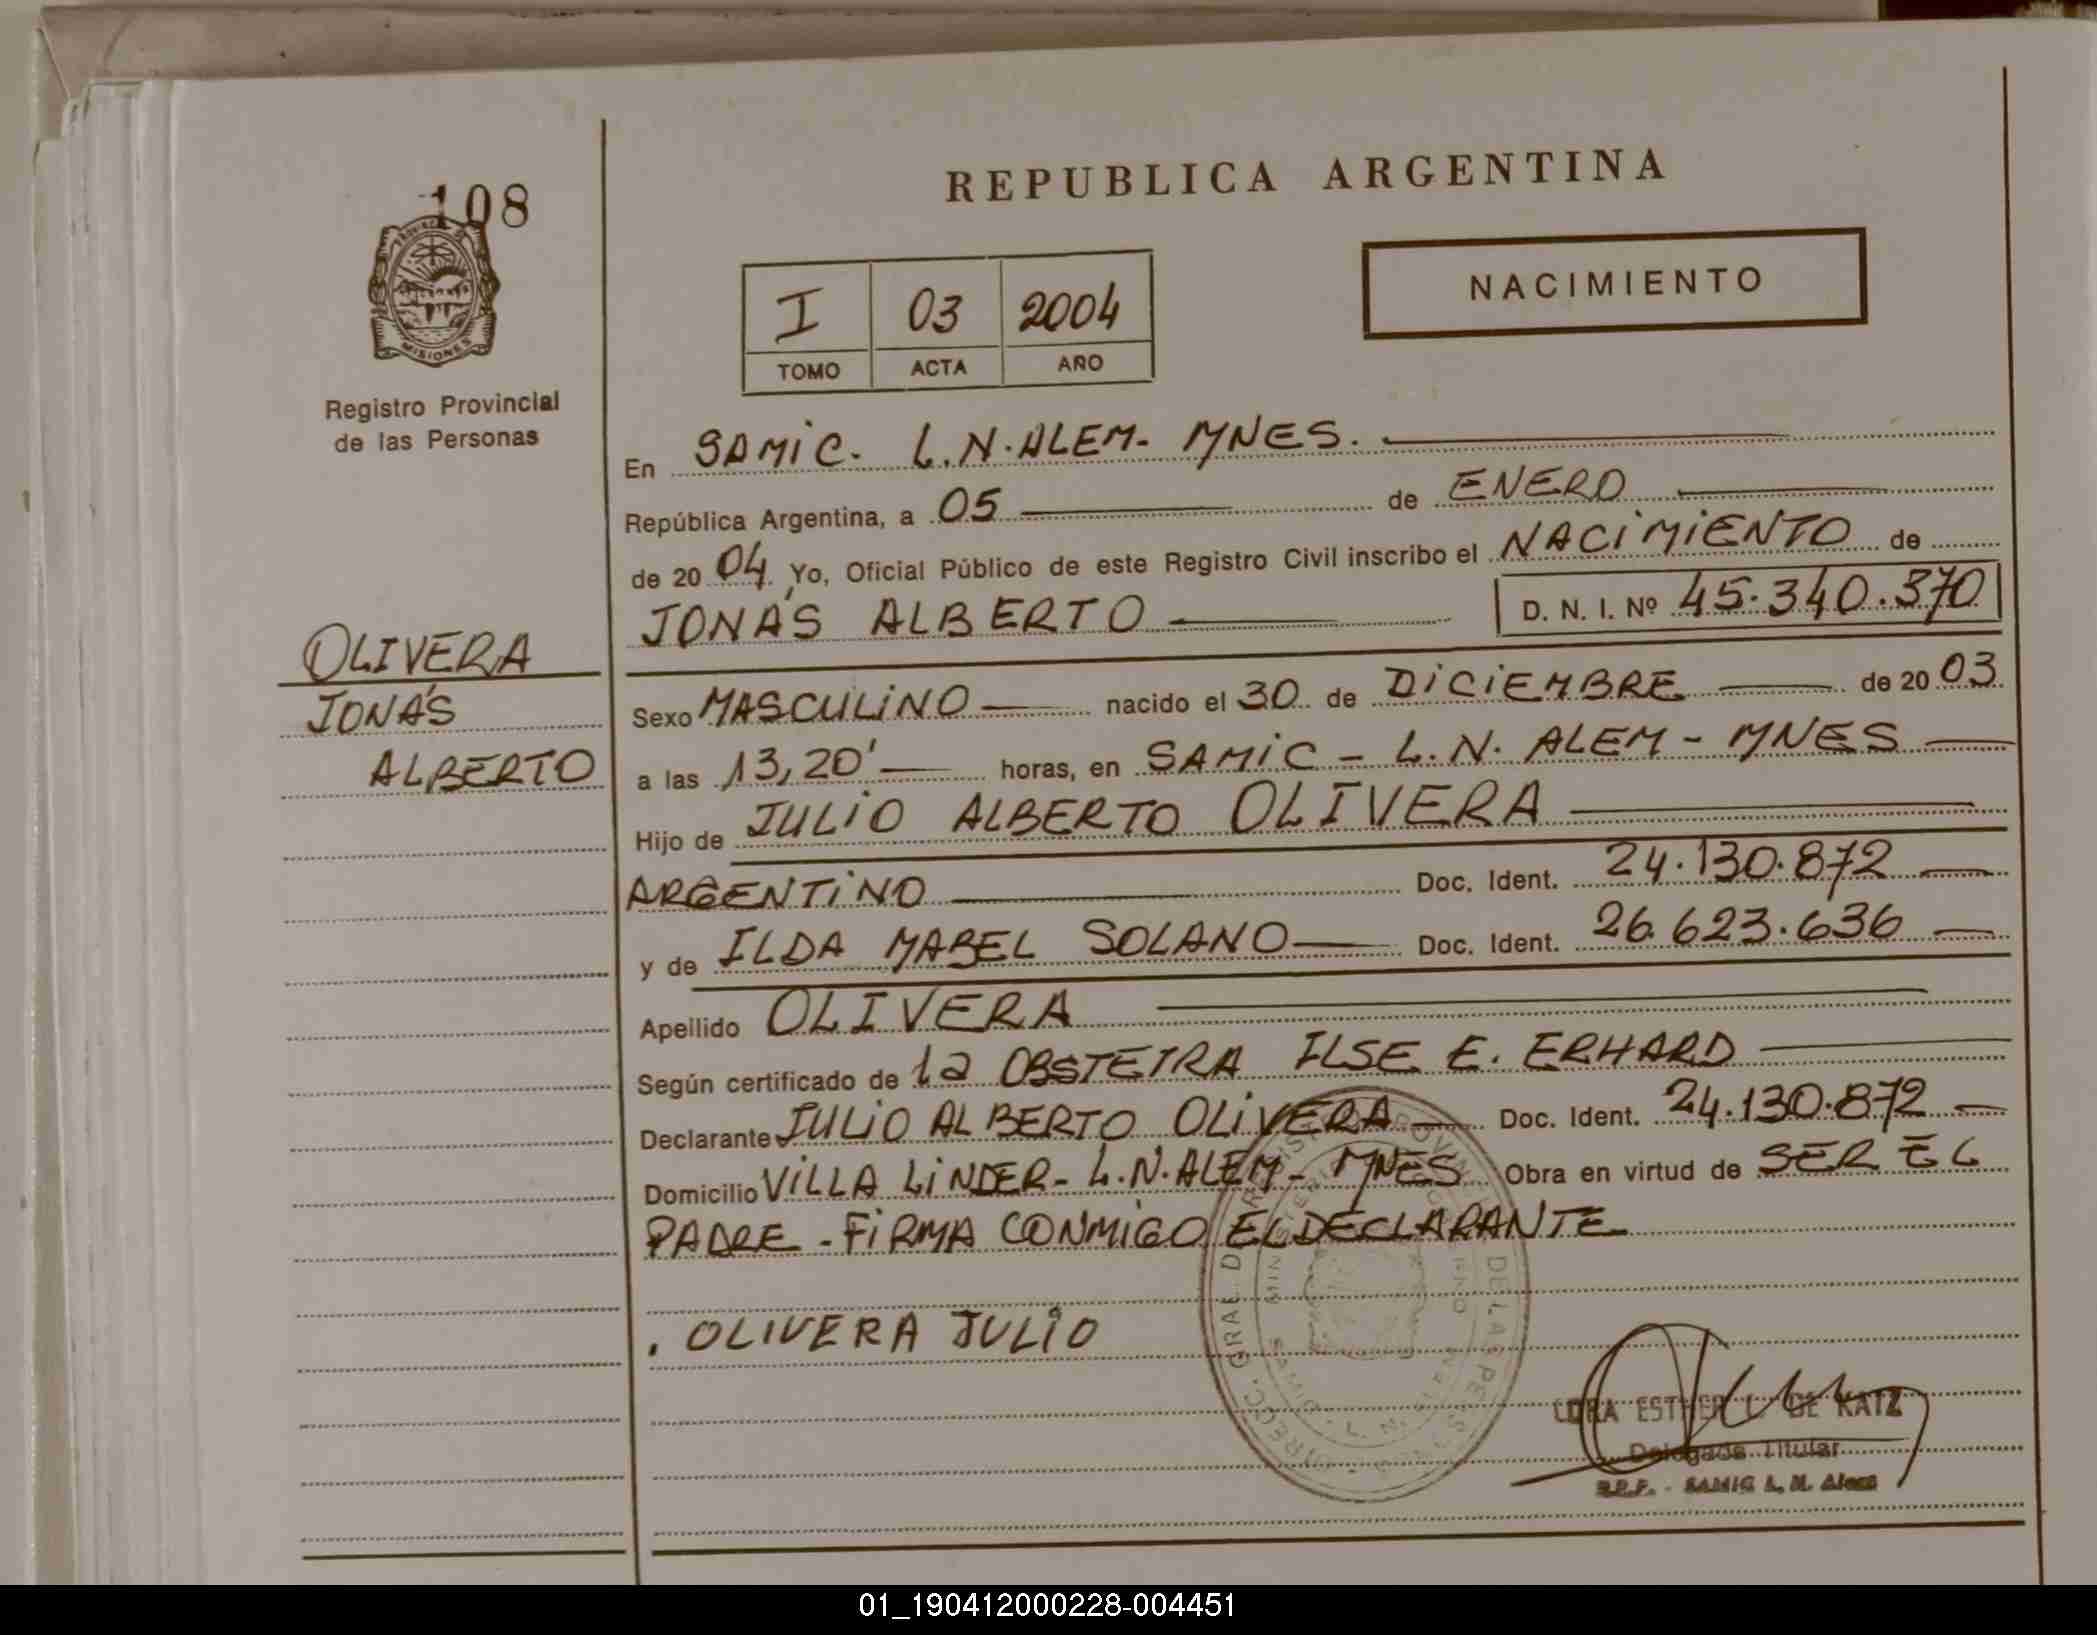 108
PROVINCIA DE
MISIONES
Registro Provincial
de las Personas
OLIVERA
JONÁS
ALBERTO
REPUBLICA ARGENTINA
I 03 2004
TOMO ACTA AÑO
NACIMIENTO
En SAMIC. L.N.ALEM- MNES.
República Argentina, a 05 de ENERO
de 20 04. Yo, Oficial Público de este Registro Civil inscribo el NACIMIENTO de
JONÁS ALBERTO D. N. I. Nº 45.340.370
Sexo MASCULINO nacido el 30 de DICIEMBRE de 20 03
a las 13,20' horas, en SAMIC - L.N. ALEM - MNES
Hijo de JULIO ALBERTO OLIVERA
ARGENTINO Doc. Ident. 24.130.872
y de ILDA MABEL SOLANO Doc. Ident. 26.623.636
Apellido OLIVERA
Según certificado de la OBSTETRA ILSE E. ERHARD
Declarante JULIO ALBERTO OLIVERA Doc. Ident. 24.130.872
Domicilio VILLA LINDER- L.N.ALEM- MNES Obra en virtud de SER EL
PADRE - FIRMA CONMIGO EL DECLARANTE
. OLIVERA JULIO
ESTHER L. DE KATZ
Delegada Titular
SAMIC L. N. Alem
01_190412000228-004451